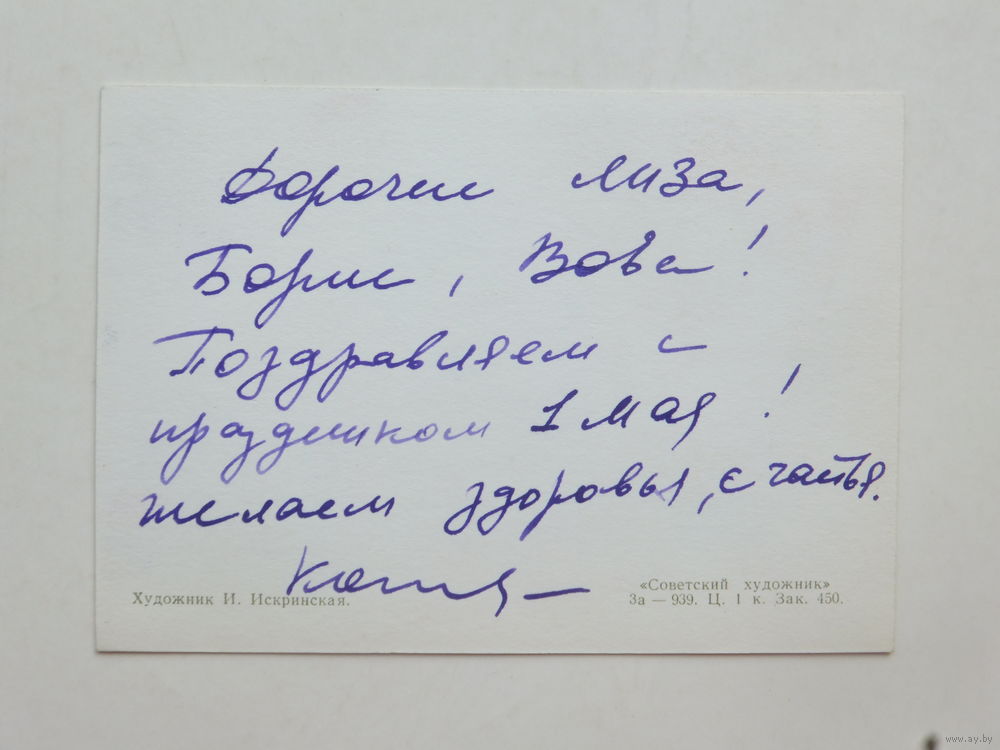 Дорогие Лиза,
Борис, Вова!
Поздравляем с
праздником 1 мая!
желаем здоровья, счастья.
Художник И. Искринская.
«Советский художник»
3а — 939. Ц. 1 к. Зак. 450.
www.ay.by